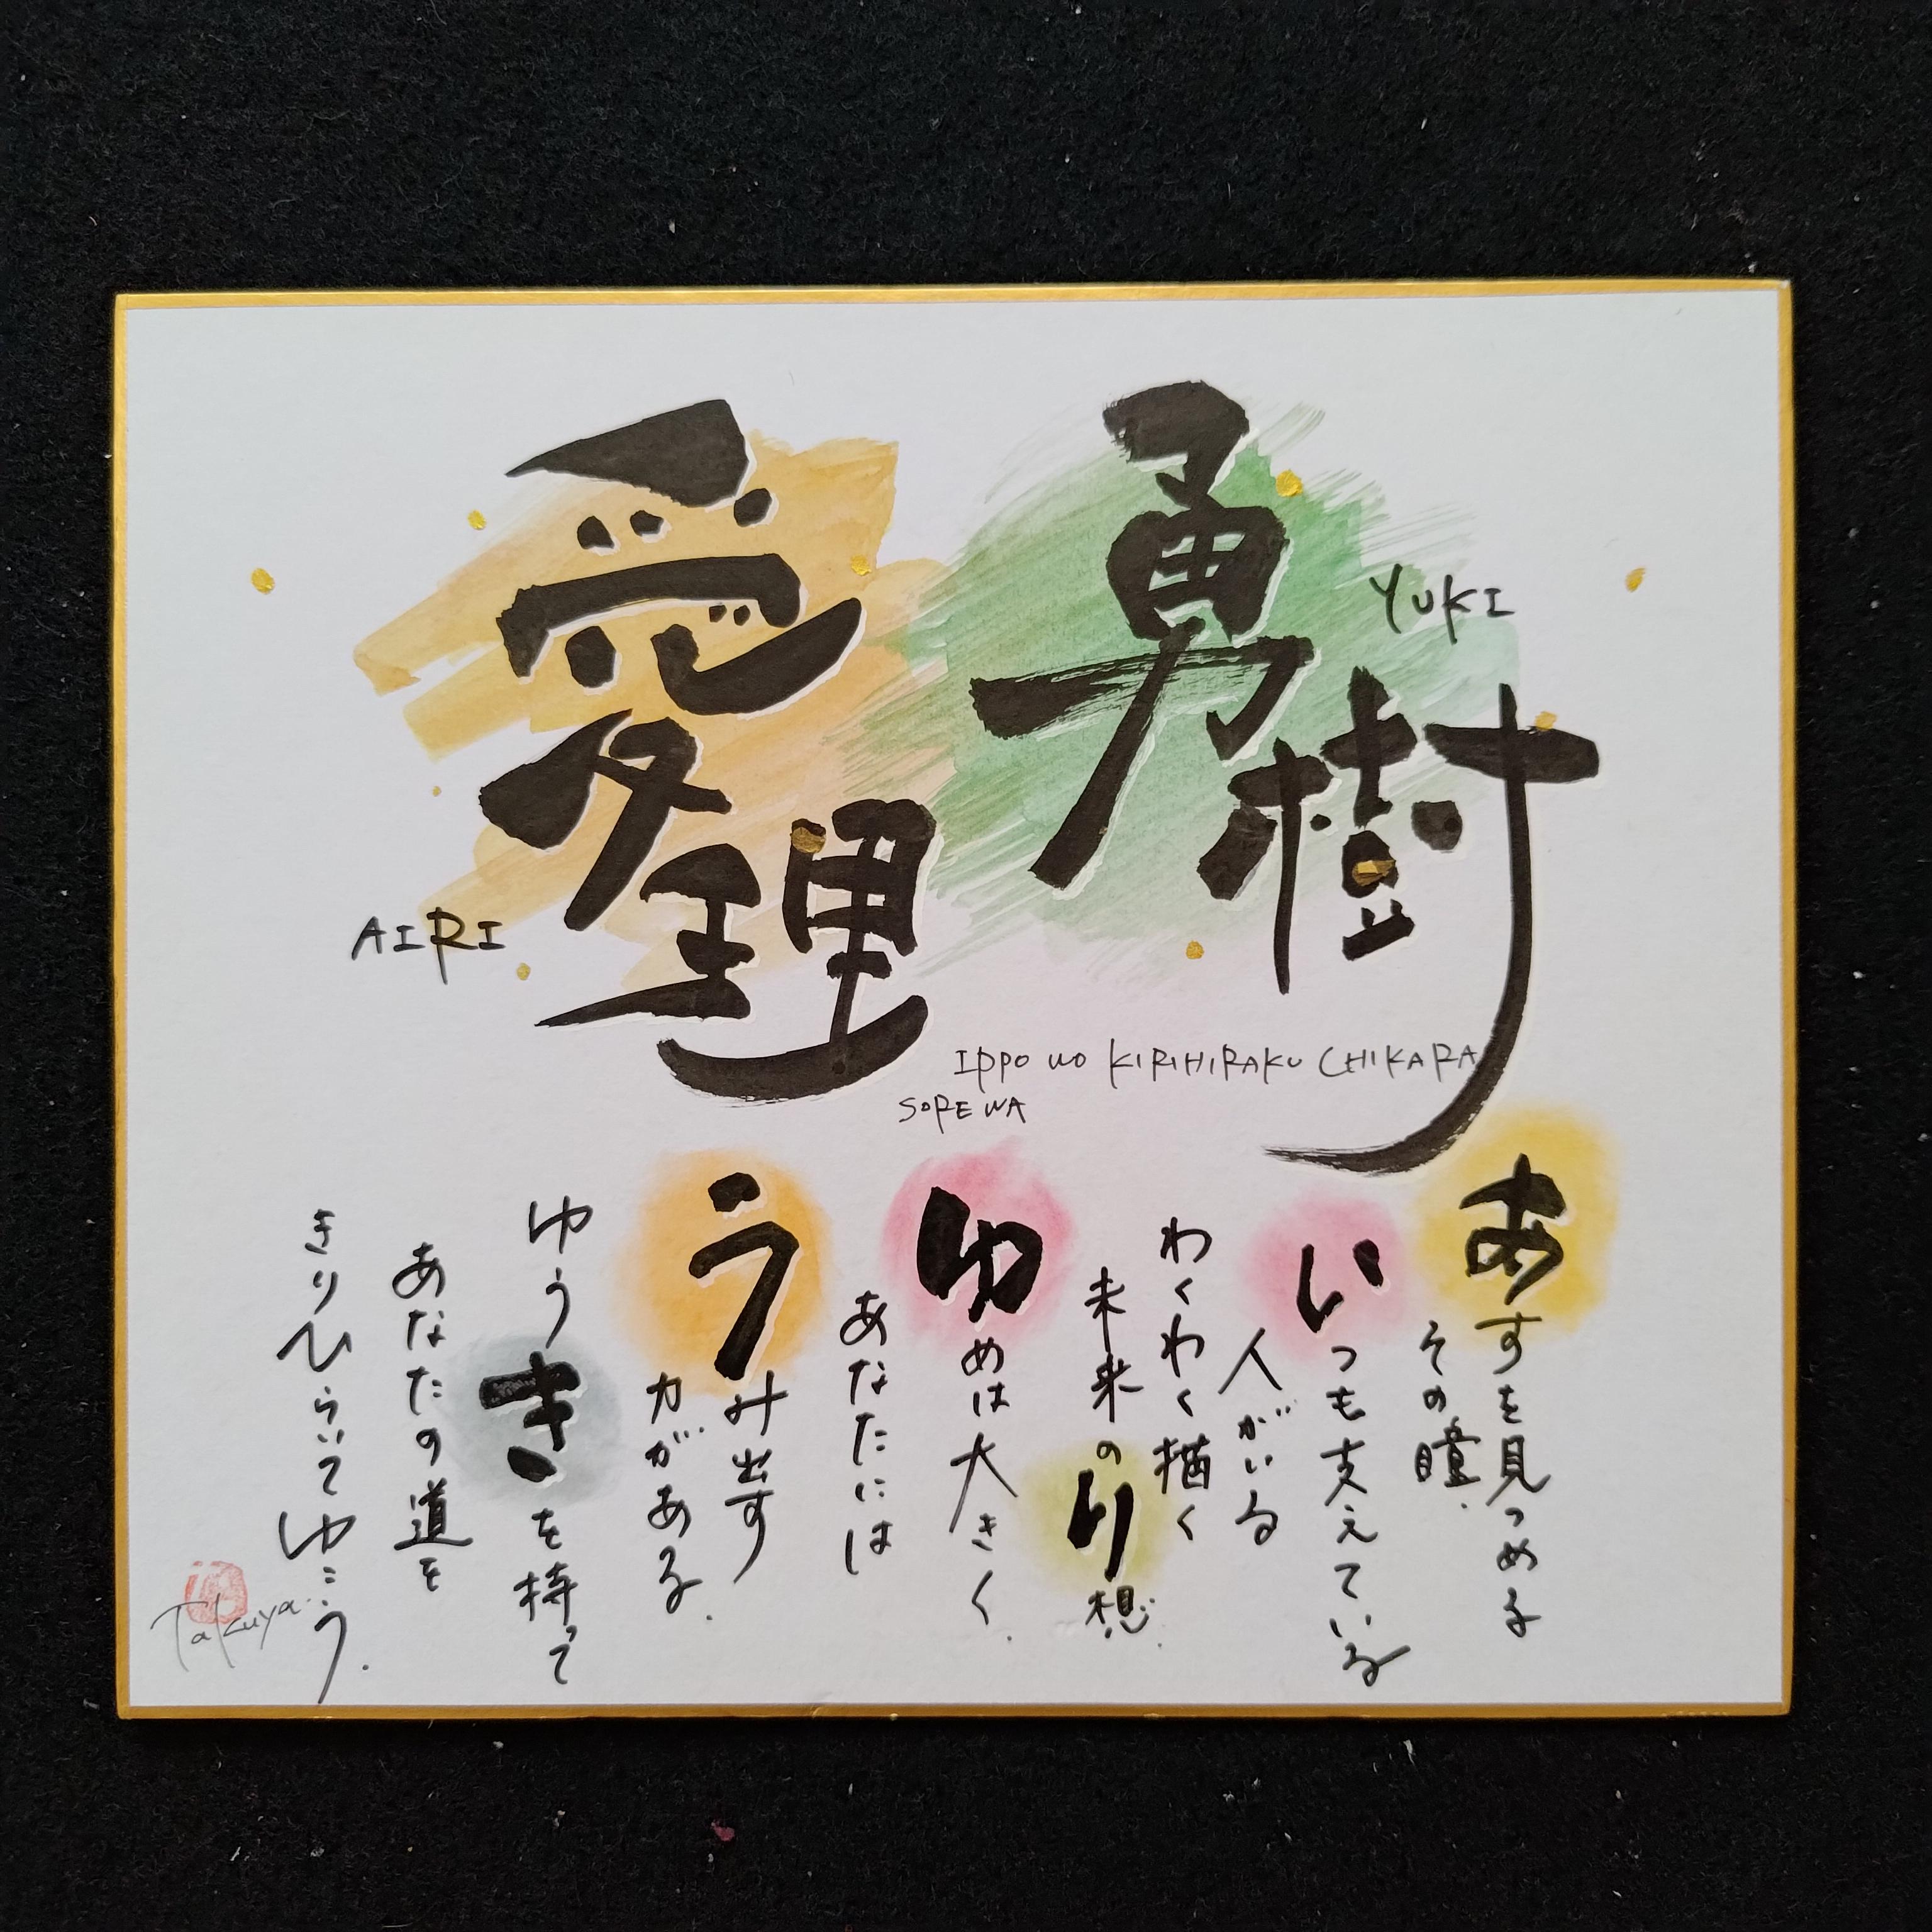 勇樹
YUKI
愛理
AIRI
IPPO WO KIRIHIRAKU CHIKARA
SORE WA
あすを見つめる
その瞳.
いつも支えている
人がいる
わくわく描く
未来のり想.
ゆめは大きく.
あなたには
うみ出す
力がある.
ゆうきを持って
あなたの道を
きりひらいてゆこう.
Takuya.